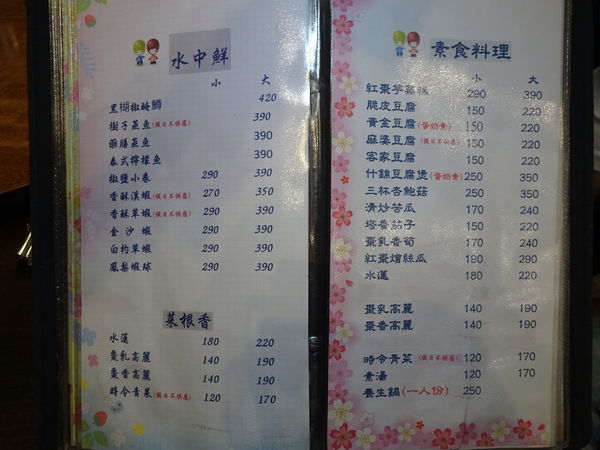 水中鮮
小 大
黑椒醃鯛 420
樹子蒸魚(假日不供應) 390
藥膳蒸魚 390
泰式檸檬魚 390
椒鹽小卷 290 390
香酥溪蝦(假日不供應) 270 350
香酥草蝦(假日不供應) 290 390
金沙蝦 290 390
白灼草蝦 290 390
鳳梨蝦球 290 390
菜根香
水蓮 180 220
棗乳高麗 140 190
棗香高麗 140 190
時令青菜(假日不供應) 120 170
素食料理
小 大
紅棗芋蒸糕 290 390
脆皮豆腐 150 220
黃金豆腐(蛋奶素) 150 220
麻婆豆腐(假日不供應) 150 220
客家豆腐 150 220
什錦豆腐煲(蛋奶素) 250 350
三杯杏鮑菇 250 350
清炒苦瓜 170 240
塔香茄子 150 220
棗乳香筍 170 240
紅棗燴絲瓜 190 290
水蓮 180 220
棗乳高麗 140 190
棗香高麗 140 190
時令青菜(假日不供應) 120 170
素湯 120 170
養生鍋(一人份) 250